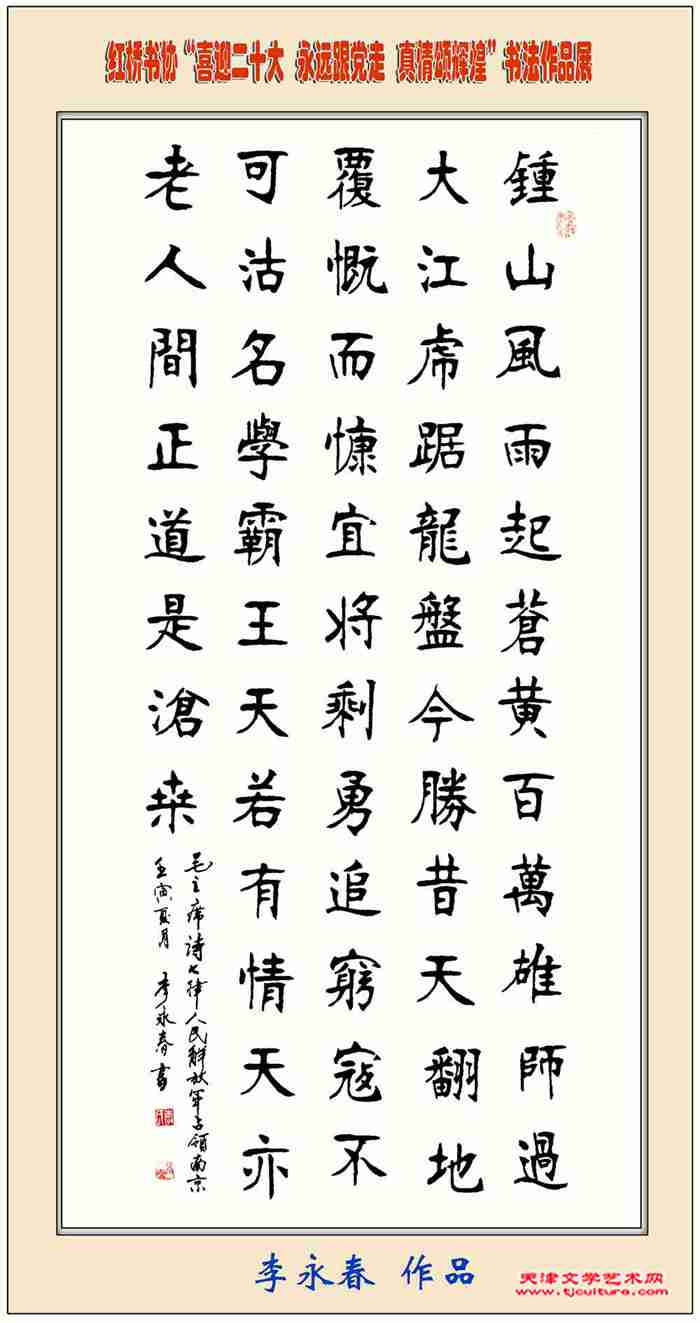 红桥书协“喜迎二十大 永远跟党走 真情颂辉煌”书法作品展
鍾山風雨起蒼黃百萬雄師過
大江虎踞龍盤今勝昔天翻地
覆慨而慷宜将剩勇追窮寇不
可沽名學霸王天若有情天亦
老人間正道是滄桒
毛主席詩七律人民解放軍占領南京
壬寅夏月 李永春書
李永春 作品
天津文学艺术网
www.tjculture.com